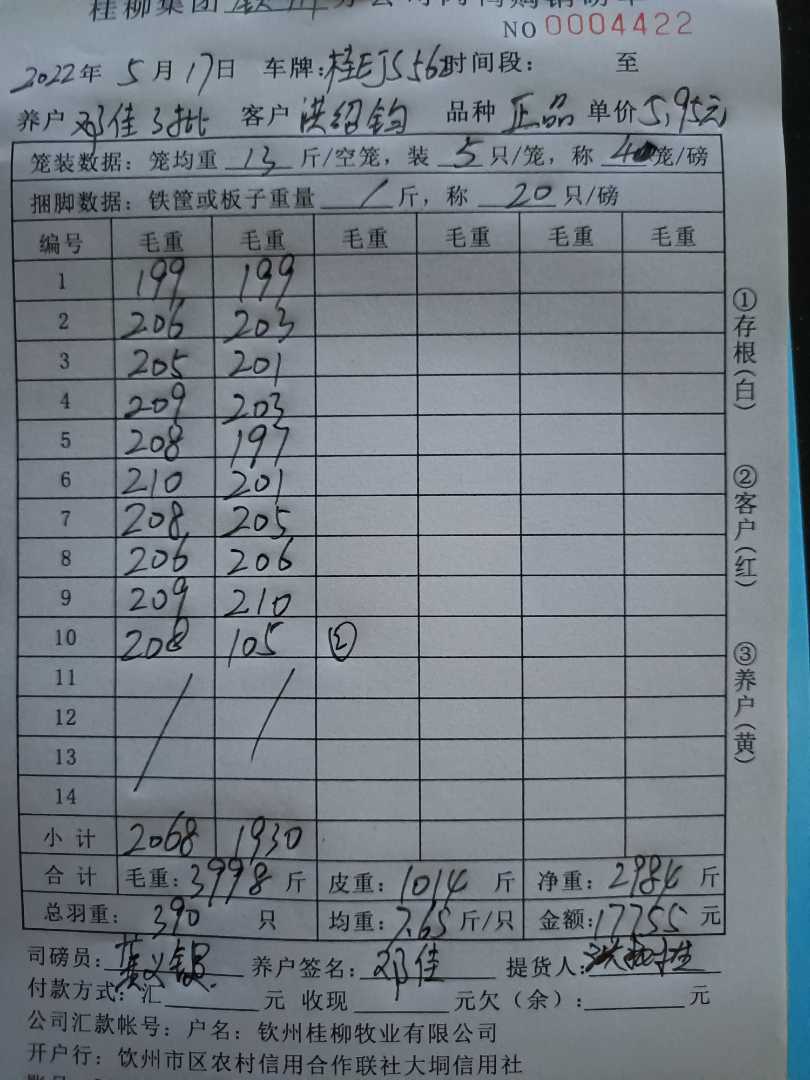 桂柳集团 分公司肉鸭购销磅单
NO 0004422
2022年 5月17日 车牌:桂EJS562 时间段: 至
养户 邓佳3批 客户 洪绍钧 品种 正品 单价 5.95元
笼装数据: 笼均重 13 斤/空笼, 装 5 只/笼, 称 4 笼/磅
捆脚数据: 铁筐或板子重量 / 斤, 称 20 只/磅
编号 毛重 毛重 毛重 毛重 毛重 毛重
1 199 199
2 206 203
3 205 201
4 209 203
5 208 197
6 210 201
7 208 205
8 206 206
9 209 210
10 208 105 ②
11 / /
12
13
14
小计 2068 1930
合计 毛重:3998 斤 皮重:1014 斤 净重:2984 斤
总羽重: 390 只 均重:7.65 斤/只 金额:17755 元
①存根(白)
②客户(红)
③养户(黄)
司磅员: 养户签名: 邓佳 提货人:
付款方式: 汇 元 收现 元欠(余): 元
公司汇款帐号: 户名: 钦州桂柳牧业有限公司
开户行: 钦州市区农村信用合作联社大垌信用社